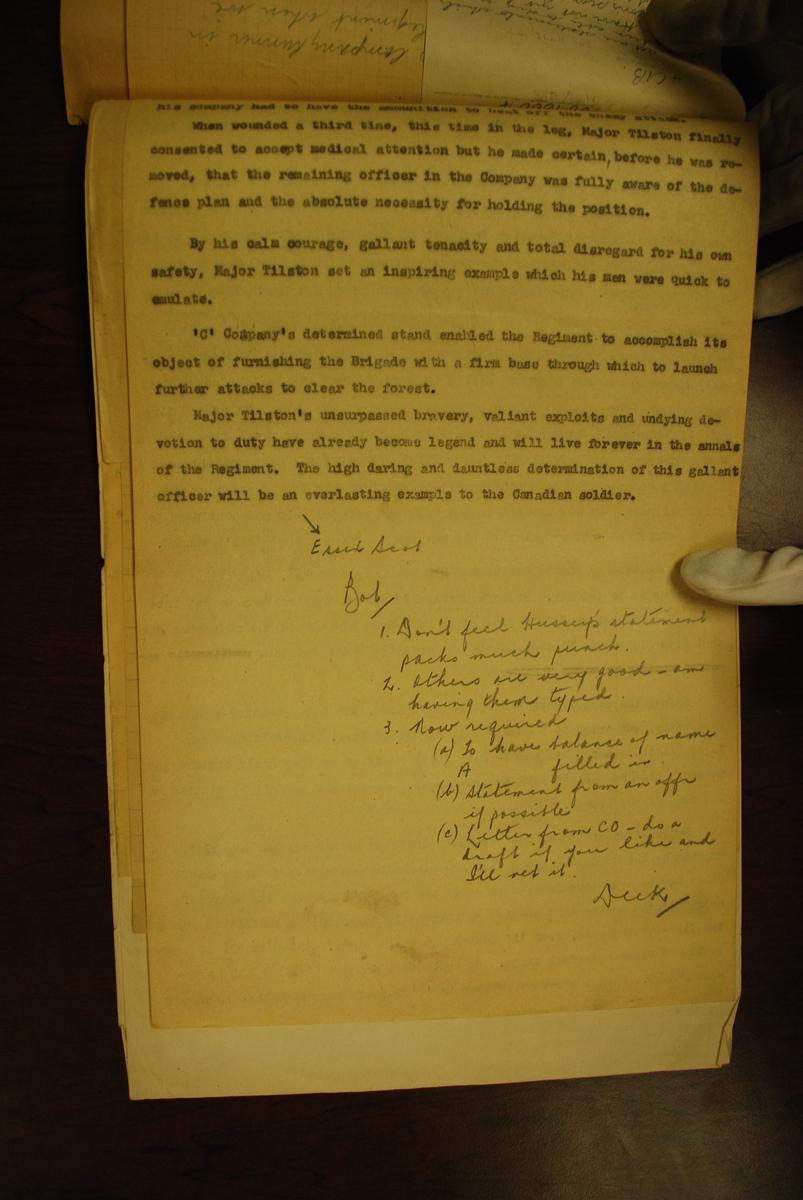 his company had to have the ammunition to beat off the enemy attack.
When wounded a third time, this time in the leg, Major Tilston finally
consented to accept medical attention but he made certain, before he was re-
moved, that the remaining officer in the Company was fully aware of the de-
fence plan and the absolute necessity for holding the position.
By his calm courage, gallant tenacity and total disregard for his own
safety, Major Tilston set an inspiring example which his men were quick to
emulate.
'C' Company's determined stand enabled the Regiment to accomplish its
object of furnishing the Brigade with a firm base through which to launch
further attacks to clear the forest.
Major Tilston's unsurpassed bravery, valiant exploits and undying de-
votion to duty have already become legend and will live forever in the annals
of the Regiment. The high daring and dauntless determination of this gallant
officer will be an everlasting example to the Canadian soldier.
Essex Scot
Bob/
1. Don't feel Hussey's statement
packs much punch.
2. Others are very good - am
having them typed.
3. Now required
(a) To have balance of name
A filled in.
(b) Statement from an offr
if possible
(c) Letter from CO - do a
draft if you like and
I'll vet it.